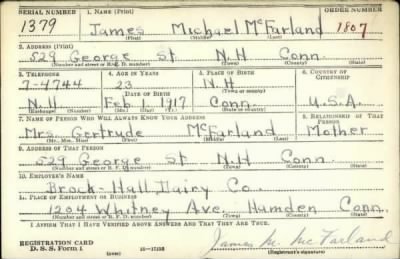 SERIAL NUMBER 1. NAME (Print) ORDER NUMBER
1379 James Michael McFarland 1807
(First) (Middle) (Last)
2. ADDRESS (Print)
529 George St N.H Conn.
(Number and street or R. F. D. number) (Town) (County) (State)
3. TELEPHONE 4. AGE IN YEARS 5. PLACE OF BIRTH 6. COUNTRY OF CITIZENSHIP
7-4744 23 N.H
DATE OF BIRTH (Town or county)
N.H. Feb 1, 1917 Conn. U.S.A.
(Exchange) (Number) (Mo.) (Day) (Yr.) (State or country)
7. NAME OF PERSON WHO WILL ALWAYS KNOW YOUR ADDRESS 8. RELATIONSHIP OF THAT PERSON
Mrs. Gertrude McFarland Mother
(Mr., Mrs., Miss) (First) (Middle) (Last)
9. ADDRESS OF THAT PERSON
529 George St N.H Conn.
(Number and street or R. F. D. number) (Town) (County) (State)
10. EMPLOYER'S NAME
Brock-Hall Dairy Co.
11. PLACE OF EMPLOYMENT OR BUSINESS
1204 Whitney Ave. Hamden Conn.
(Number and street or R. F. D. number) (Town) (County) (State)
I AFFIRM THAT I HAVE VERIFIED ABOVE ANSWERS AND THAT THEY ARE TRUE.
REGISTRATION CARD
D. S. S. FORM 1 (over) James M. McFarland
(Registrant's signature)